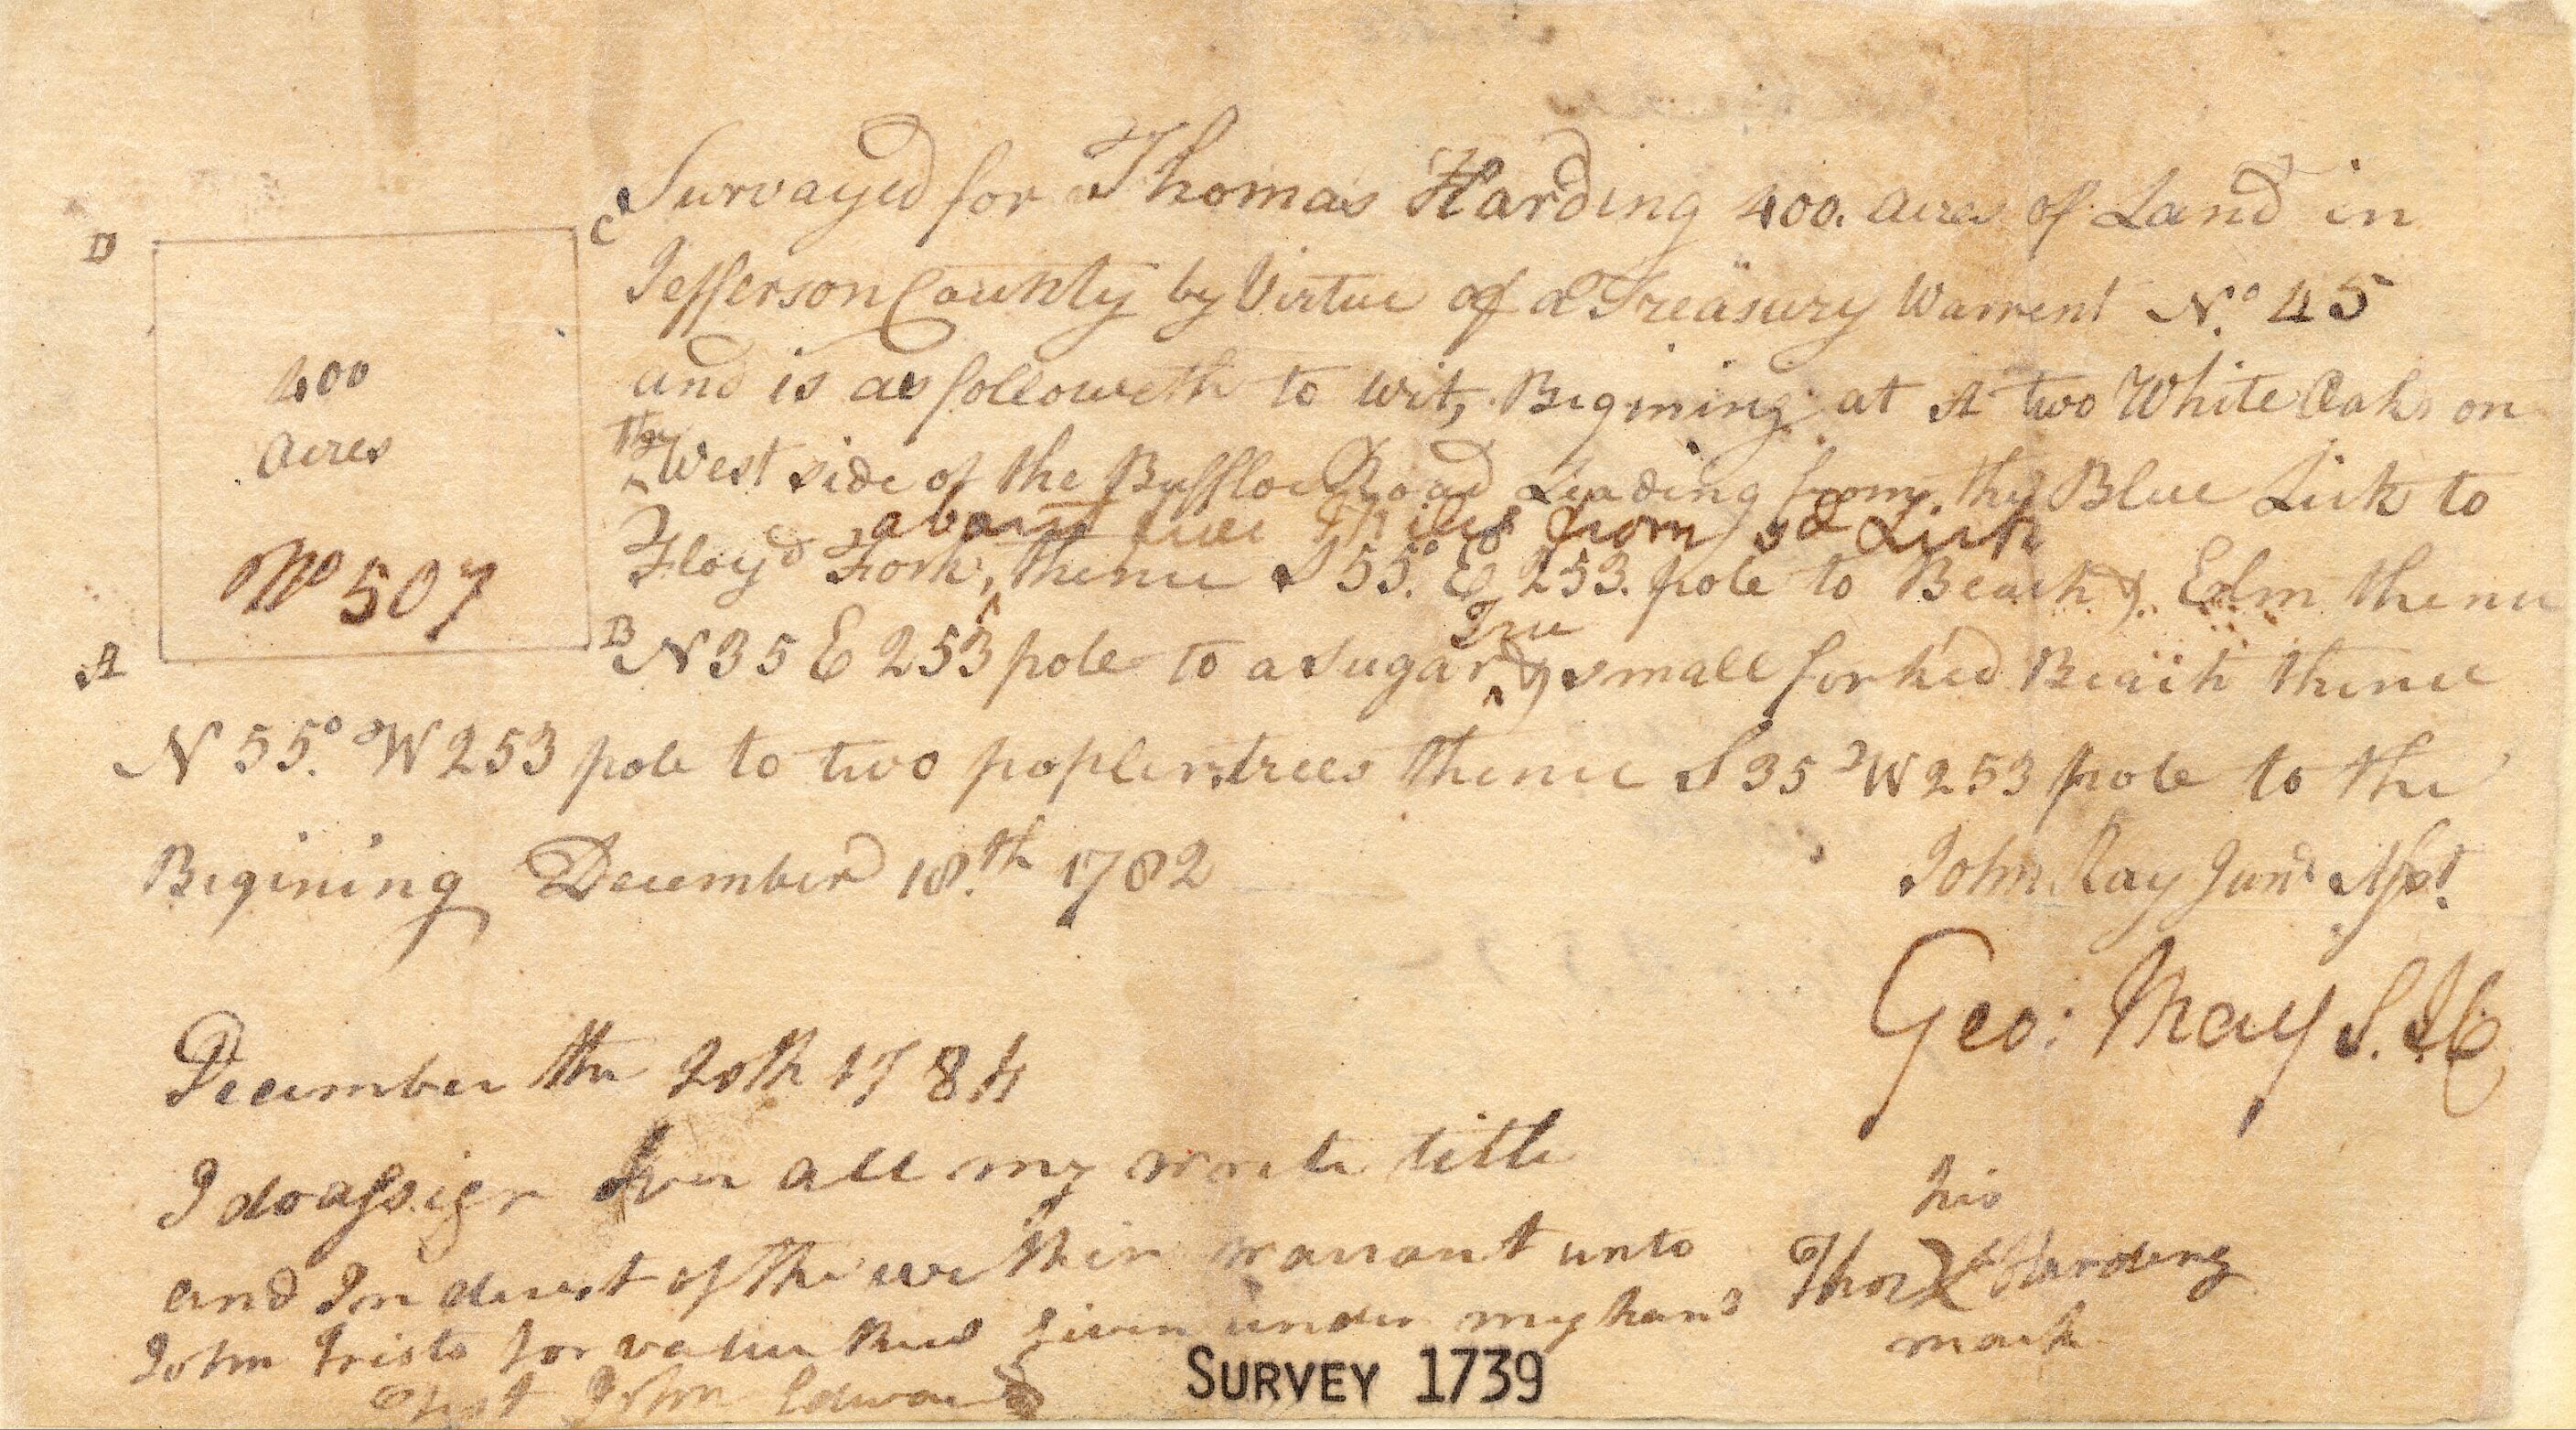 Survayed for Thomas Harding 400. acres of Land in
Jefferson County by Virtue of a Treasury Warrent No. 45
and is as followeth to wit, Begining at A two White Oaks on
the
West side of the Buffloe Road Leading from the Blue Lick to
about five Miles from sd Lick
Floyd Fork, thence S 55.° E 253. pole to Beach & Elm thence
N 35 E 253 pole to a sugar Tree & small forked Beach thence
N 55.° W 253 pole to two popler trees thence S 35° W 253 pole to the
Begining December 18.th 1782
John Ray Junr. Asst.
Geo: May S. J C
D
C
400
acres
No 507
A
B
December the 20th 1784
I do assign over all my write title
and Interest of the within warrant unto
John for value Recd given under my hand
Test John Edwards
his
Thos X Harding
mark
SURVEY 1739